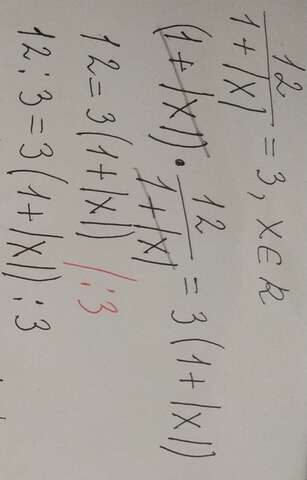 12/(1+|x|) = 3, x∈R
(1+|x|) · 12/(1+|x|) = 3(1+|x|)
12=3(1+|x|) /:3
12:3=3(1+|x|):3